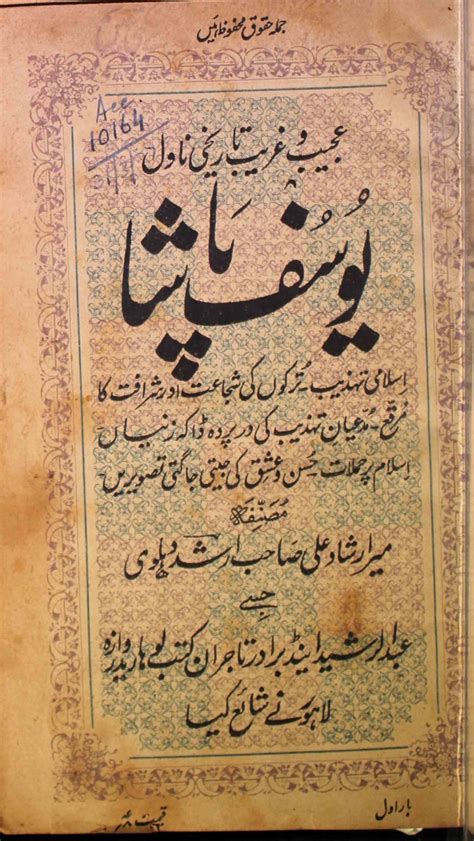 جملہ حقوق محفوظ ہیں
Acc
10164
عجیب و غریب تاریخی ناول
یُوسُف پاشا
اِسلامی تہذیب۔ تُرکوں کی شجاعت اور شرافت کا
مُرقع۔ مُدعیانِ تہذیب کی در پردہ ڈاکہ زنیاں
اِسلام پر حملات۔ حُسن و عشق کی جیتی جاگتی تصویریں
مُصنّفہ
میر ارشاد علی صاحب ارشد دہلوی
جسے
عبدالرشید اینڈ برادر تاجران کتب لوہاریدروازہ
لاہور نے شائع کیا
بار اول
قیمت